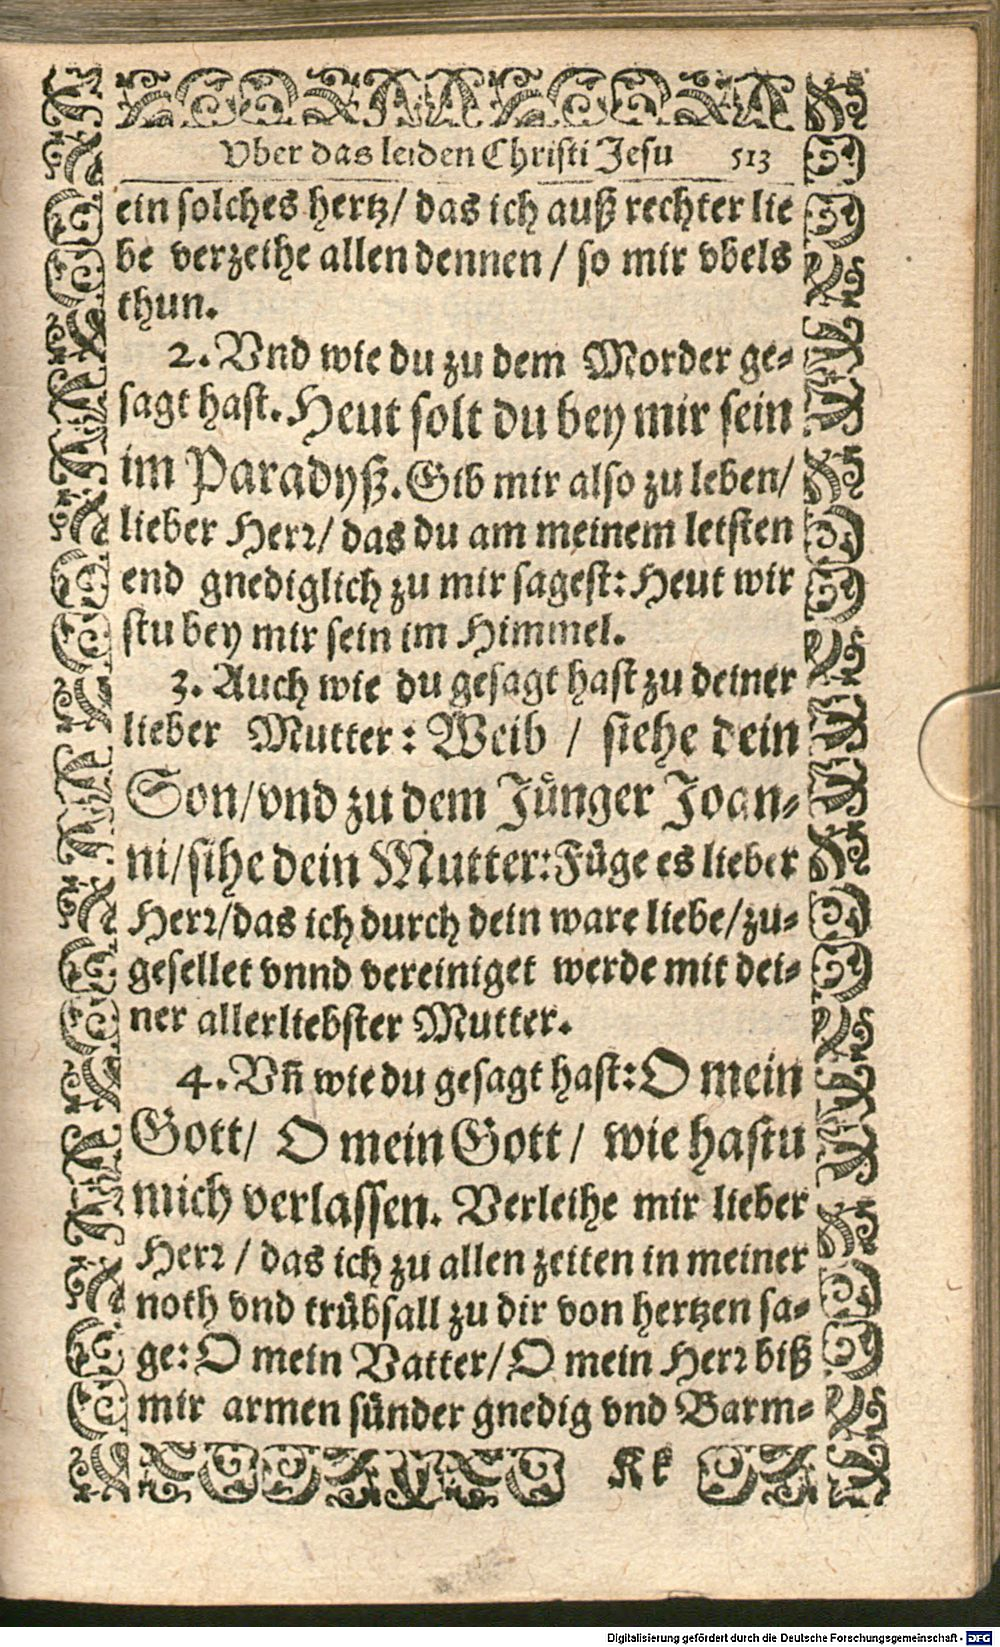 Vber das leiden Christi Jesu 513
ein solches hertz/ das ich auß rechter lie
be verzeihe allen dennen / so mir vbels
thun.
2. Vnd wie du zu dem Morder ge-
sagt hast. Heut solt du bey mir sein
im Paradyß. Gib mir also zu leben/
lieber Herr/ das du am meinem letsten
end gnediglich zu mir sagest: Heut wir
stu bey mir sein im Himmel.
3. Auch wie du gesagt hast zu deiner
lieber Mutter: Weib / siehe dein
Son/vnd zu dem Jünger Joan-
ni/sihe dein Mutter: Füge es lieber
Herr/das ich durch dein ware liebe/zu-
gesellet vnnd vereiniget werde mit dei-
ner allerliebster Mutter.
4. Vñ wie du gesagt hast: O mein
Gott/ O mein Gott/ wie hastu
mich verlassen. Verleihe mir lieber
Herr / das ich zu allen zeiten in meiner
noth vnd trübsall zu dir von hertzen sa-
ge: O mein Vatter/ O mein Herr biß
mir armen sünder gnedig vnd Barm-
Kk
Digitalisierung gefördert durch die Deutsche Forschungsgemeinschaft - DFG